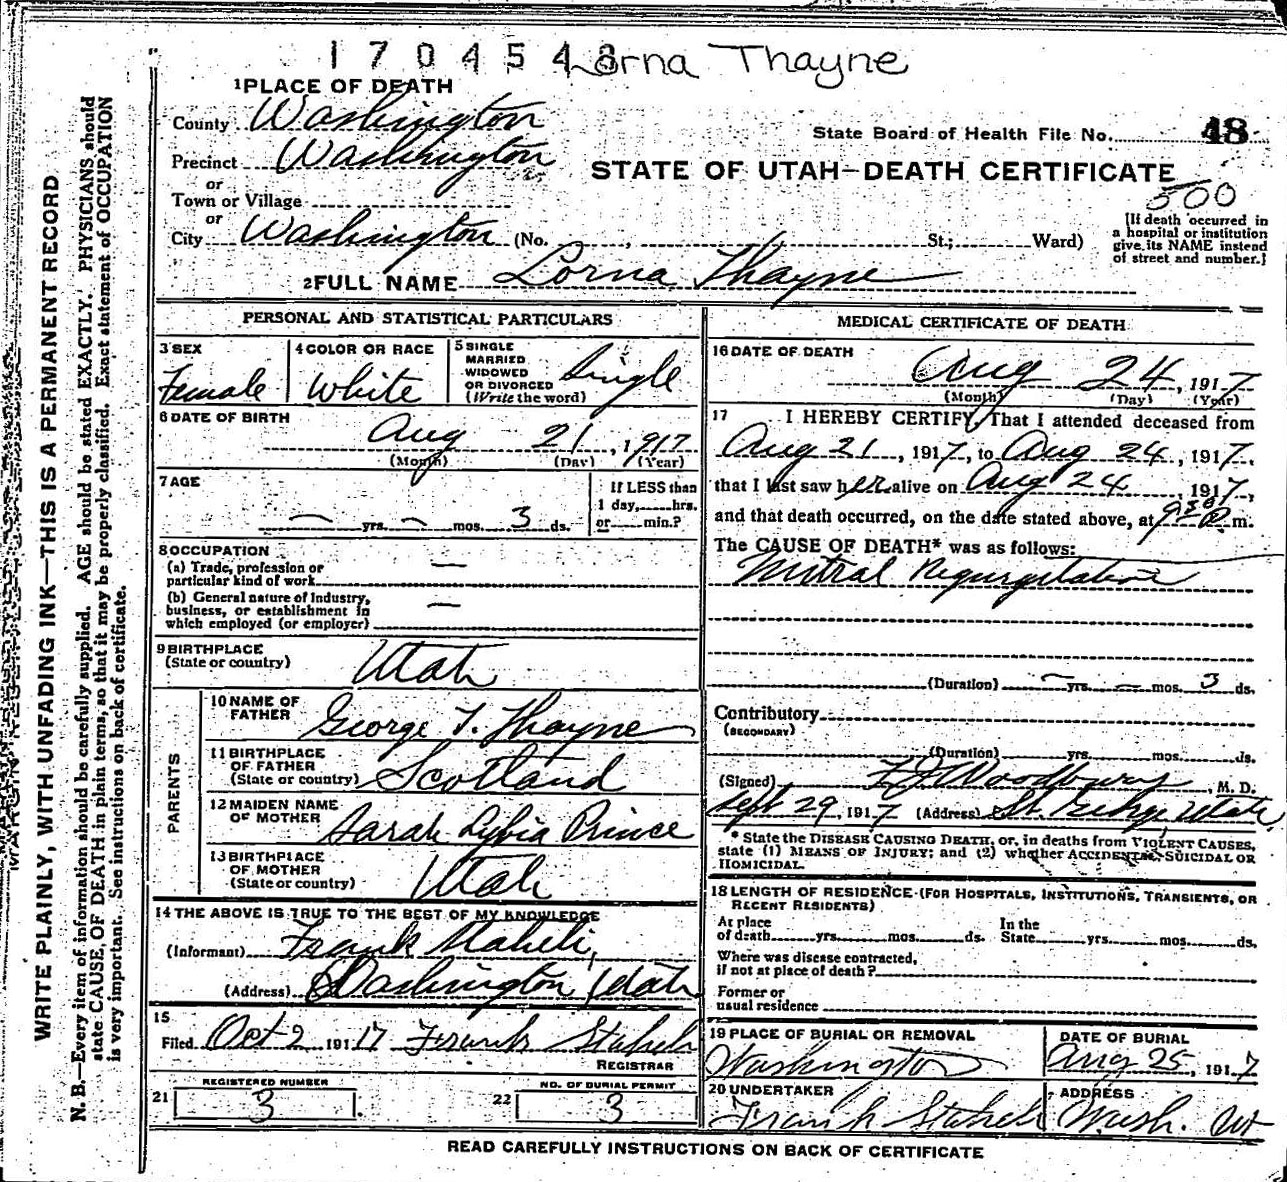 1704543 Lorna Thayne
1 PLACE OF DEATH
County Washington
State Board of Health File No. 48
Precinct Washington
STATE OF UTAH—DEATH CERTIFICATE
or
Town or Village
500
or
City Washington (No. , St.; Ward)
[If death occurred in
a hospital or institution
give its NAME instead
of street and number.]
2 FULL NAME Lorna Thayne
PERSONAL AND STATISTICAL PARTICULARS
3 SEX
Female
4 COLOR OR RACE
White
5 SINGLE
MARRIED
WIDOWED
OR DIVORCED
(Write the word)
Single
6 DATE OF BIRTH
Aug 21, 1917
(Month) (Day) (Year)
7 AGE
— yrs. — mos. 3 ds.
If LESS than
1 day, hrs.
or min.?
8 OCCUPATION
(a) Trade, profession or
particular kind of work —
(b) General nature of Industry,
business, or establishment in
which employed (or employer) —
9 BIRTHPLACE
(State or country) Utah
PARENTS
10 NAME OF
FATHER George T. Thayne
11 BIRTHPLACE
OF FATHER
(State or country) Scotland
12 MAIDEN NAME
OF MOTHER Sarah Lybia Prince
13 BIRTHPLACE
OF MOTHER
(State or country) Utah
14 THE ABOVE IS TRUE TO THE BEST OF MY KNOWLEDGE
(Informant) Frank Staheli,
(Address) Washington, Utah
15
Filed Oct 2 191 17 Frank Staheli
REGISTRAR
21 REGISTERED NUMBER
3
22 NO. OF BURIAL PERMIT
3
MEDICAL CERTIFICATE OF DEATH
16 DATE OF DEATH
Aug 24, 1917
(Month) (Day) (Year)
17 I HEREBY CERTIFY, That I attended deceased from
Aug 21, 1917, to Aug 24, 1917,
that I last saw her alive on Aug 24, 1917,
and that death occurred, on the date stated above, at 930 P m.
The CAUSE OF DEATH* was as follows:
Mitral Regurgitation
(Duration) — yrs. — mos. 3 ds.
Contributory
(SECONDARY)
(Duration) yrs. mos. ds.
(Signed) F J Woodbury, M. D.
Sept 29, 1917 (Address) St. George Utah.
* State the DISEASE CAUSING DEATH, or, in deaths from VIOLENT CAUSES,
state (1) MEANS OF INJURY; and (2) whether ACCIDENTAL, SUICIDAL OR
HOMICIDAL.
18 LENGTH OF RESIDENCE (FOR HOSPITALS, INSTITUTIONS, TRANSIENTS, OR
RECENT RESIDENTS)
At place
of death yrs. mos. ds.
In the
State yrs. mos. ds.
Where was disease contracted,
if not at place of death?
Former or
usual residence
19 PLACE OF BURIAL OR REMOVAL
Washington
DATE OF BURIAL
Aug 25, 1917
20 UNDERTAKER
Frank Staheli
ADDRESS
Wash. Ut
READ CAREFULLY INSTRUCTIONS ON BACK OF CERTIFICATE
WRITE PLAINLY, WITH UNFADING INK—THIS IS A PERMANENT RECORD
N. B.—Every item of information should be carefully supplied. AGE should be stated EXACTLY. PHYSICIANS should
state CAUSE OF DEATH in plain terms, so that it may be properly classified. Exact statement of OCCUPATION
is very important. See instructions on back of certificate.